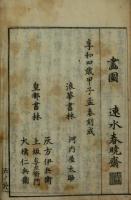 畫圖　速水春曉齋
享和四歳甲子孟春刻成
浪華書林　河内屋太助
皇都書林　
灰方伊兵衞
上坂勘兵衞
大橋仁兵衞